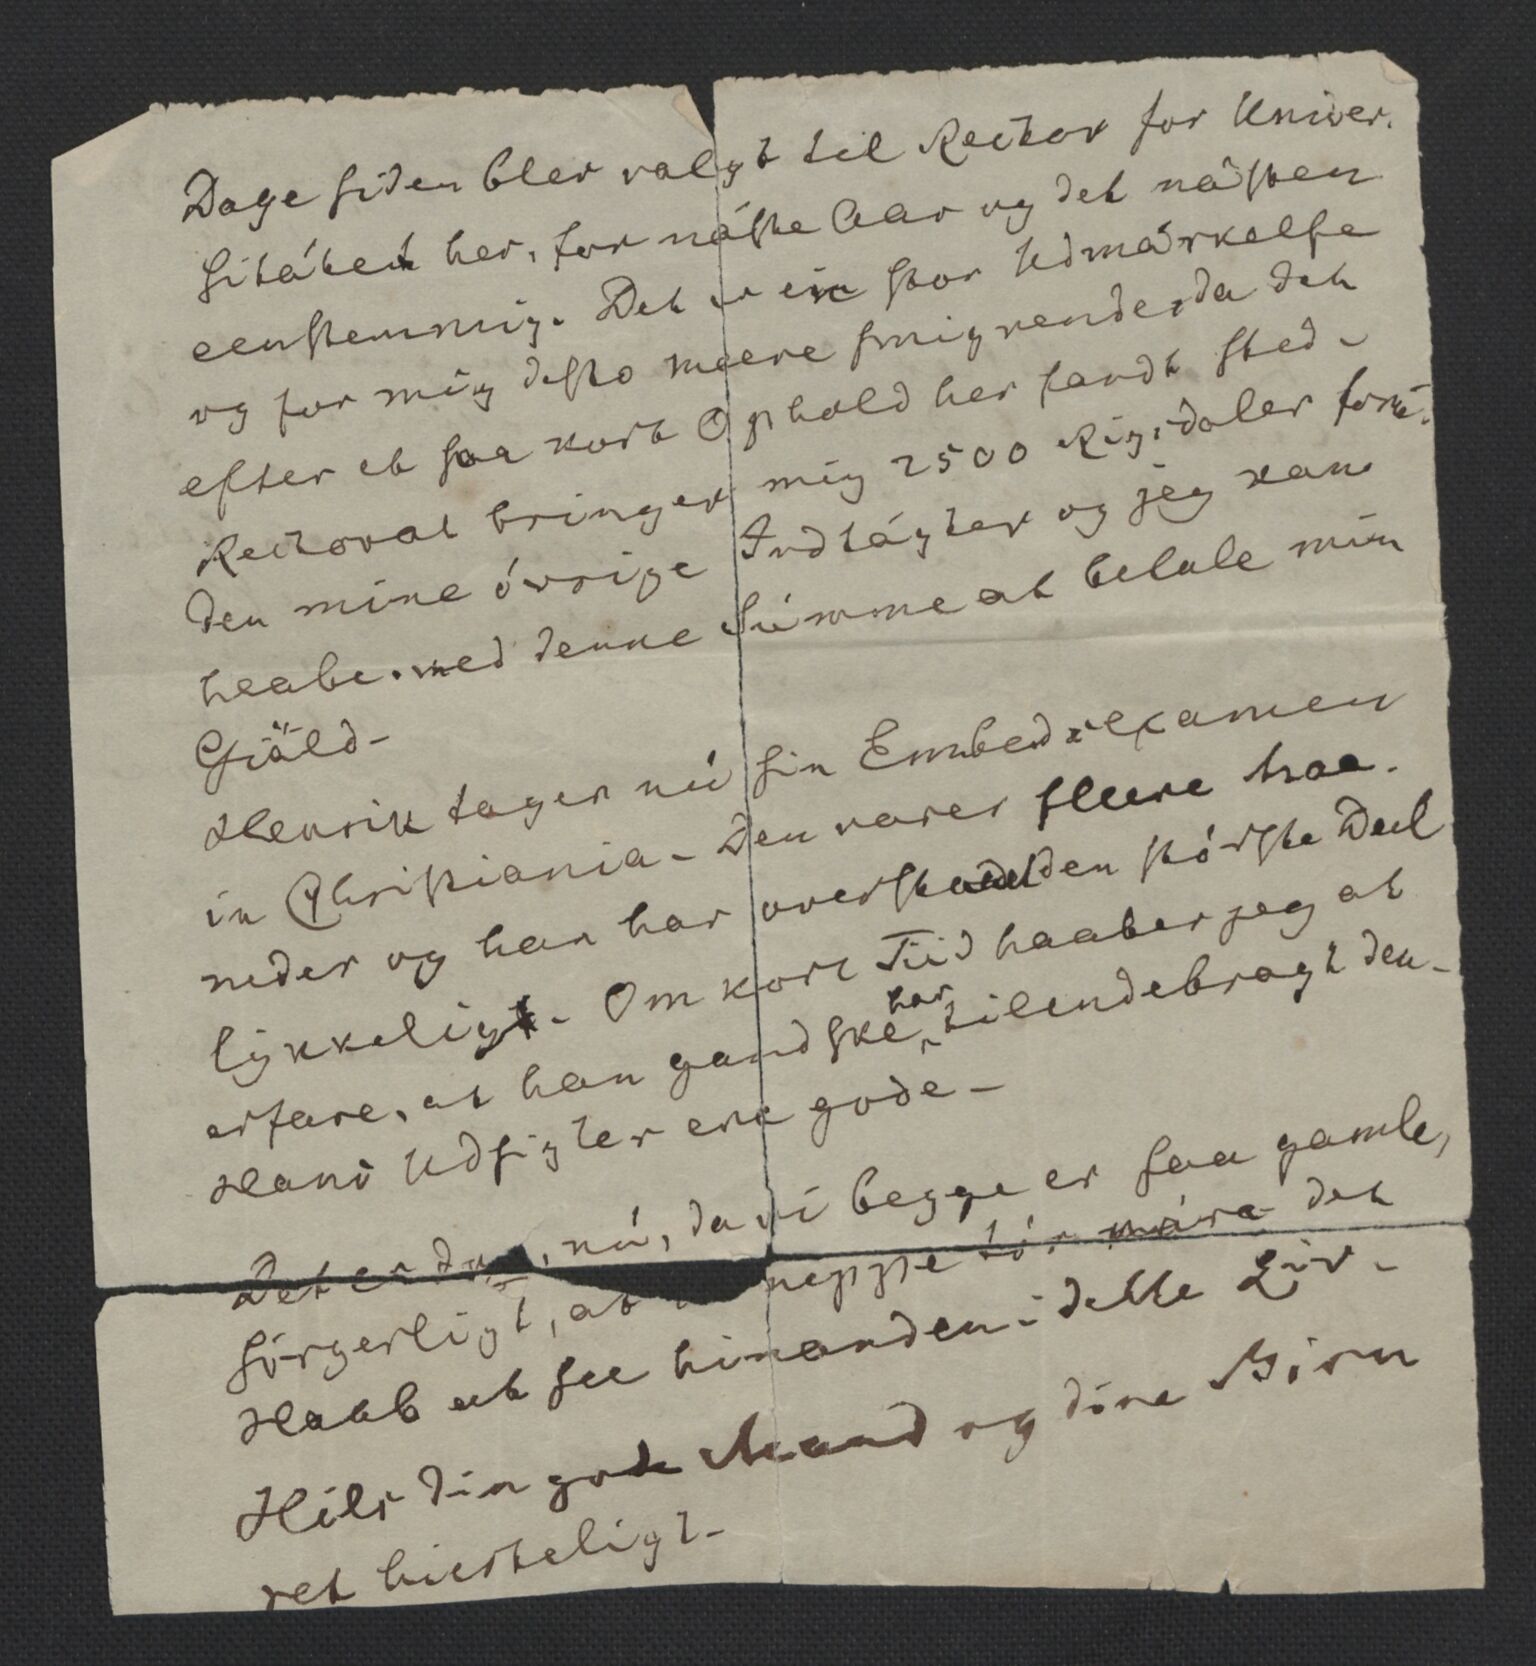 Dage siden blev valgt til Rector for Univer-
sitätet her, for näste Aar og det nästen
eenstemmig. Det er en stor Udmärkelse
og for mig desto meere smigrende, da det
efter et saa kort Ophold her fandt sted -
Rectorat bringer mig 2500 Rigsdaler foru-
den mine óvrige Indtägter og jeg kan
haabe med denne Summe at betale min
Gjäld -
Henrik tager nú sin Embedsexamen
in Christiania - Den varer fleere Maa-
neder og han har overstaaet den stórste Deel
lykkeligt - Om kort Tiid haaber jeg at
erfare, at han gandske har tilendebragt den -
Hans Udsigter ere gode -
Det er dog, nú, da vi begge er saa gamle,
sórgerligt, at neppe tór näre det
Haab at see hinanden i dette Liv -
Hils din gode Mand og dine Bórn
ret hierteligt -